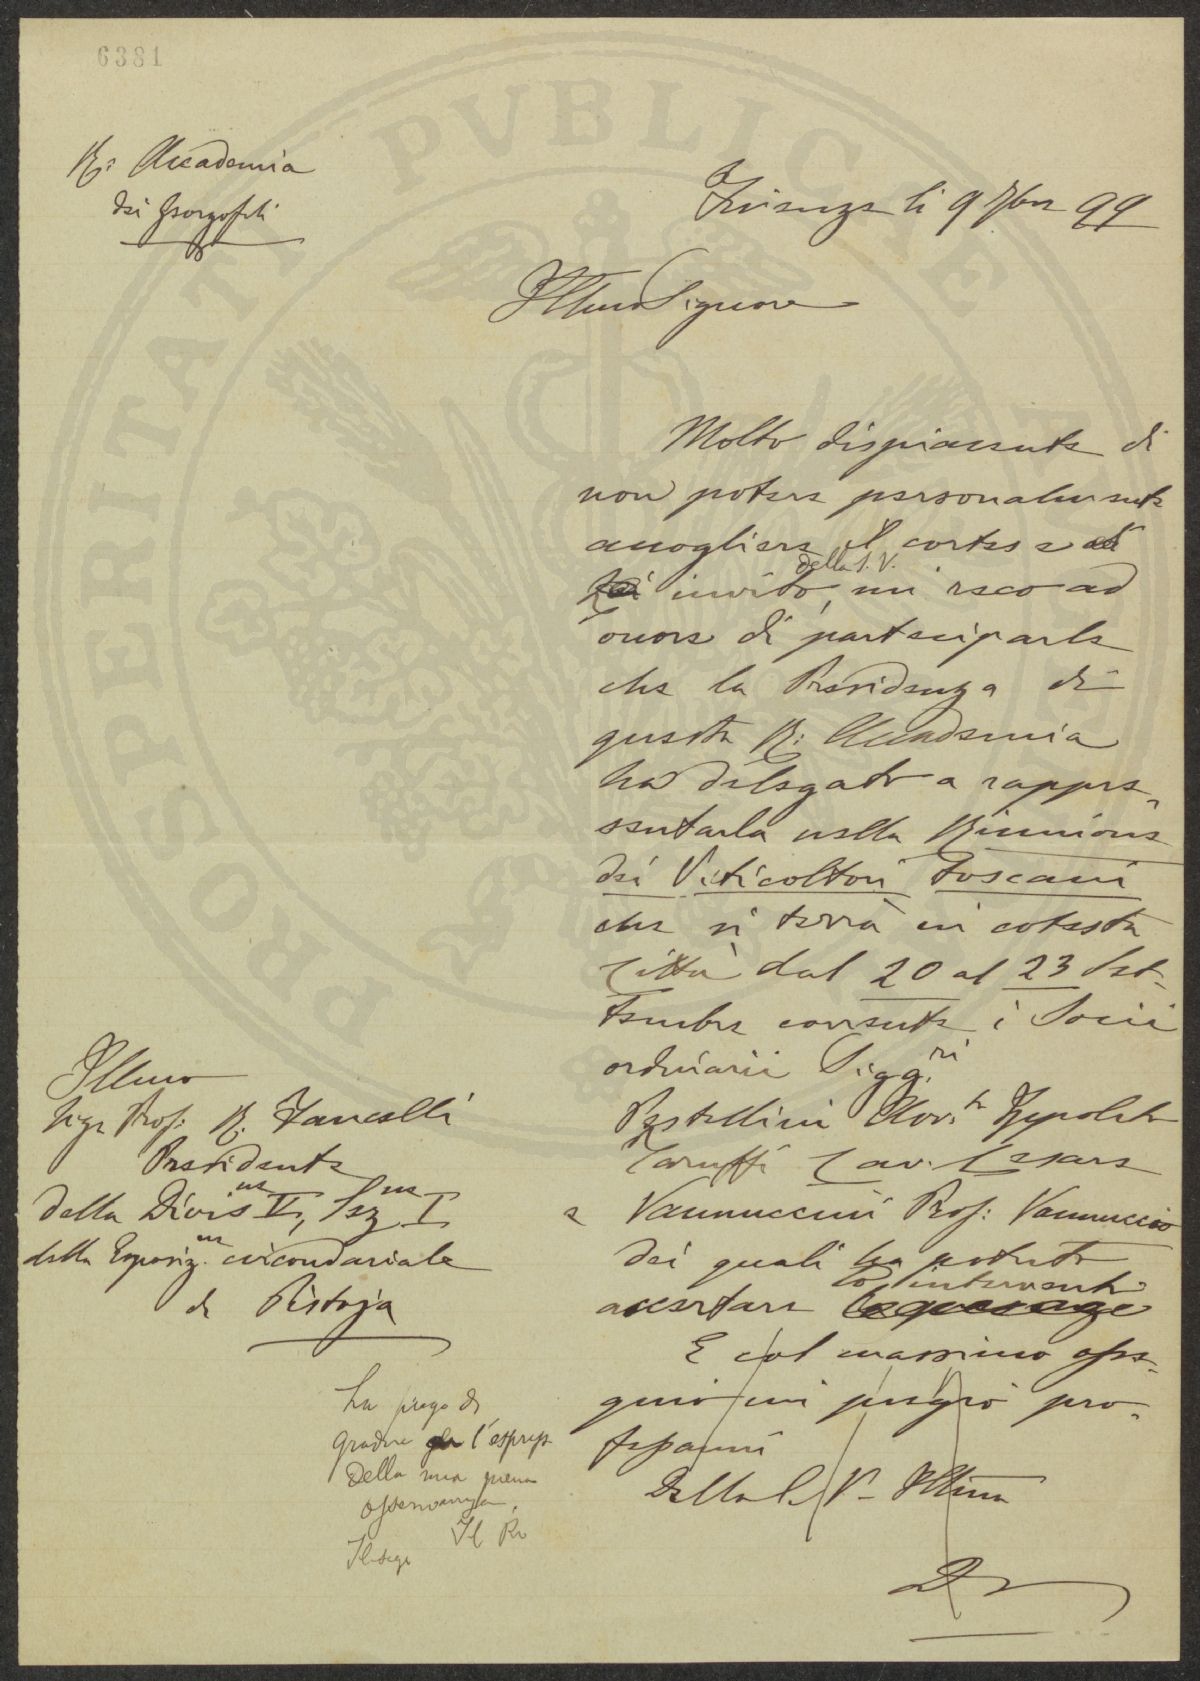 6381
R: Accademia
dei Georgofili
Firenze li 9 7bre 99
Illmo Signore
Molto dispiacente di
non potere personalmente
accogliere il cortese
della S. V.
invito, mi reco ad
onore di partecipare
che la Presidenza di
questa R: Accademia
ha delegato a rappre-
sentarla nella Riunione
dei Viticoltori Toscani
che si terrà in cotesta
Città dal 20 al 23 Set-
tembre corrente i Socii
ordinarii Sigg.ri
Pestellini Ippolito
Taruffi Cav. Cesare
e Vannuccini Prof: Vannuccio
dei quali ha potuto
lo intervento
accertare
E col massimo osse-
quio mi pregio pro-
fessarmi
Della S. V. Illma
Illmo
Sigr Prof: R. Fancelli
Presidente
della Divisne V, Sezne I
della Esposizne circondariale
di Pistoja
La prego di
gradire l'espress
della mia piena
osservanza.
Il
PROSPERITATI PVBLICAE